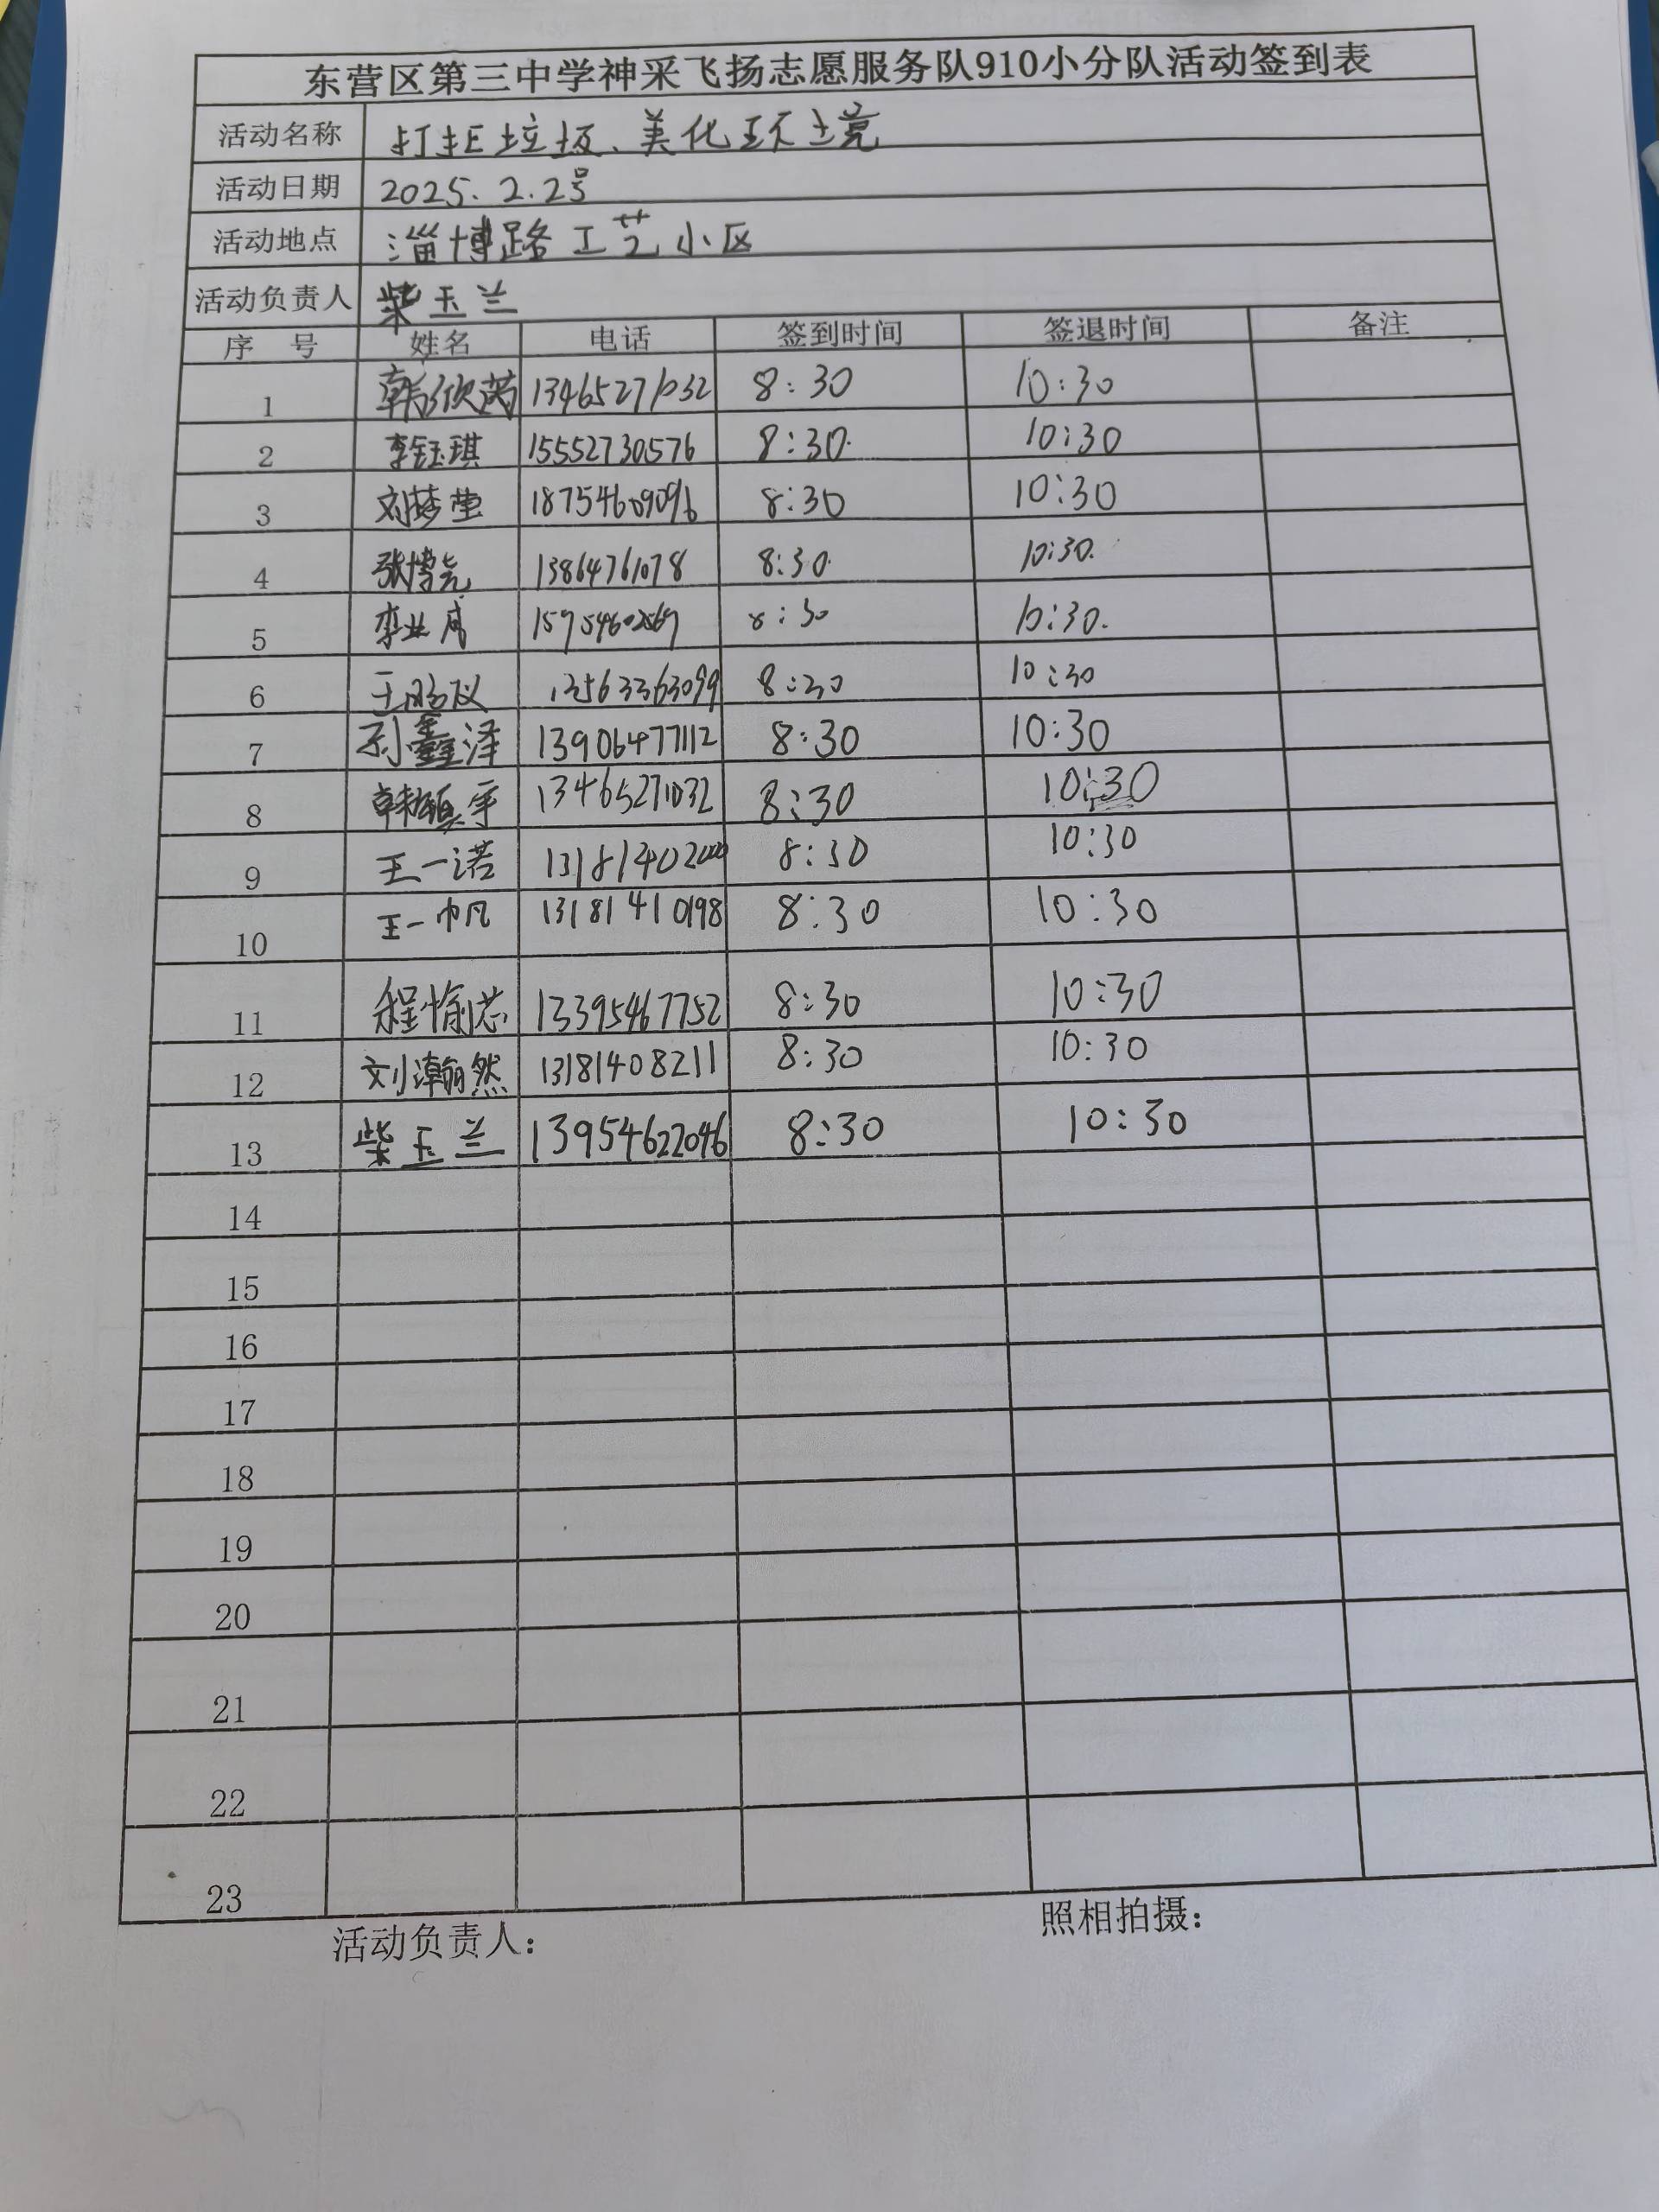 东营区第三中学神采飞扬志愿服务队910小分队活动签到表
活动名称 打扫垃圾、美化环境
活动日期 2025.2.2号
活动地点 淄博路工艺小区
活动负责人 柴玉兰
序 号 姓名 电话 签到时间 签退时间 备注
1 韩欣芮 13465271032 8:30 10:30
2 李钰琪 15552730576 8:30 10:30
3 刘梦莹 18754609096 8:30 10:30
4 张博尧 13864761078 8:30 10:30
5 李业成 8:30 10:30
6 13563363099 8:30 10:30
7 刘鑫泽 13906477112 8:30 10:30
8 13465271032 8:30 10:30
9 王一诺 13181402000 8:30 10:30
10 王一帆 13181410198 8:30 10:30
11 程愉芯 13395467752 8:30 10:30
12 刘瀚然 13181408211 8:30 10:30
13 柴玉兰 13954622046 8:30 10:30
14
15
16
17
18
19
20
21
22
23
活动负责人： 照相拍摄：